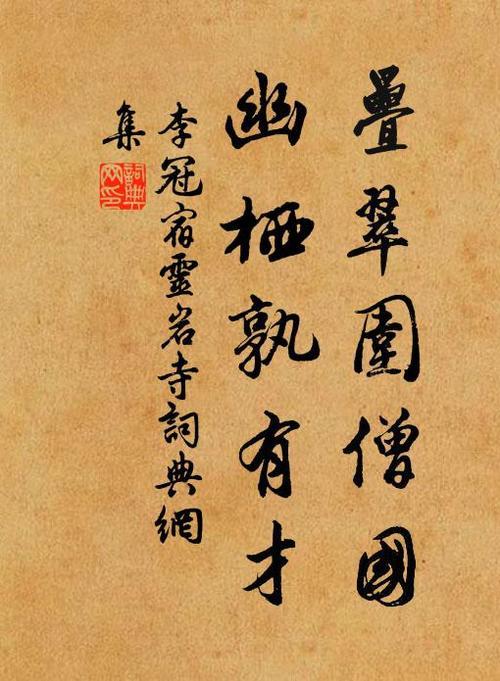 疊翠圍僧國
幽栖孰有才
李冠宿靈岩寺詞典網
集
詞典
网印